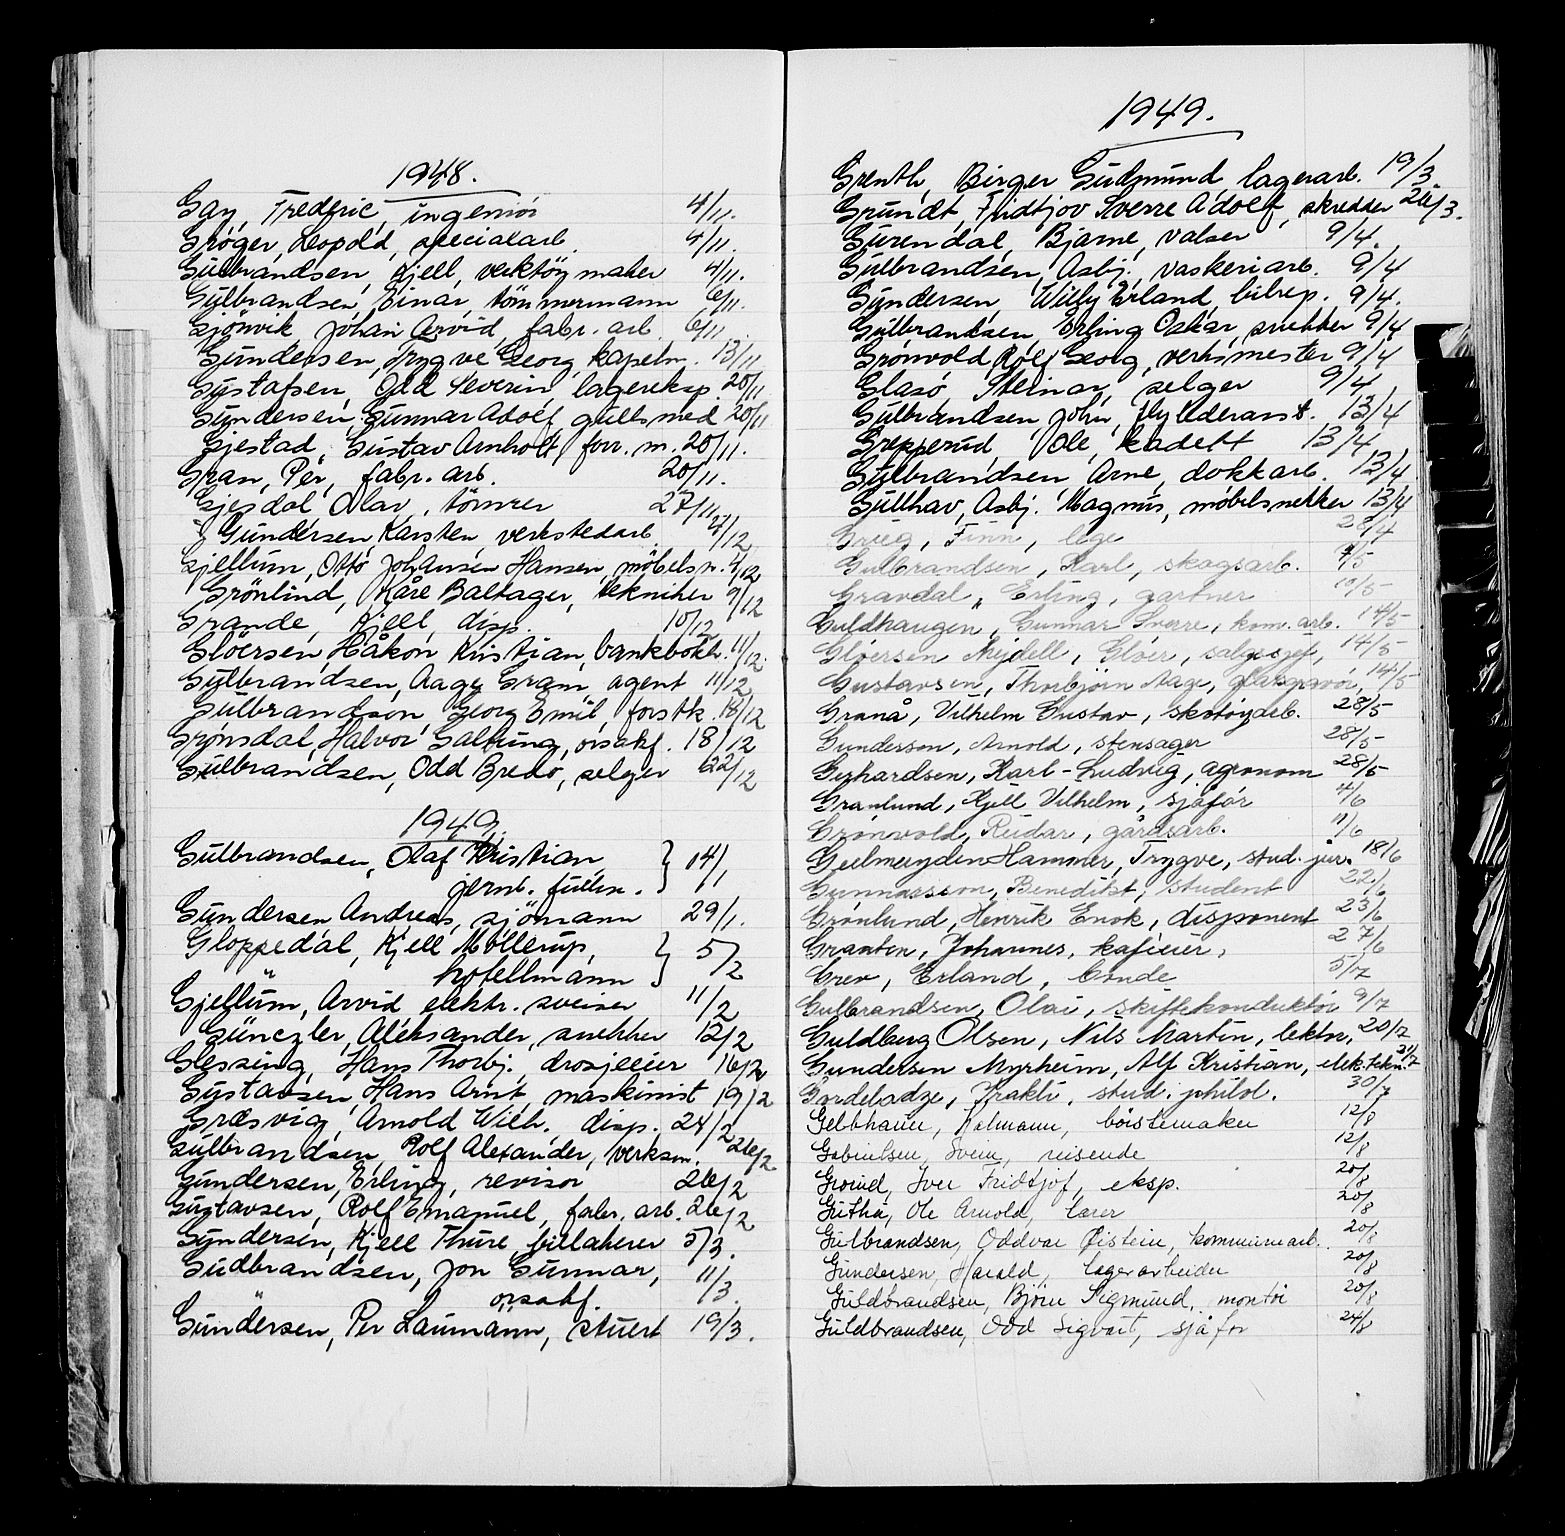 1948.
Gay, Frederic, ingeniör 4/11.
Gröger, Leopold, specialarb. 4/11.
Gulbrandsen, Kjell, verktöymaker 4/11.
Gulbrandsen, Einar, tömmermann 6/11.
Gjönvik, Johan Arvid, fabr. arb. 6/11
Gundersen, Trygve Georg, kapelm. 13/11
Gustafsen, Odd Severin, lagereksp. 20/11
Gundersen, Gunnar Adolf, gullsmed 20/11
Gjestad, Gustav Arnholt, forr. m. 20/11.
Gran, Per, fabr. arb. 20/11.
Gjesdal Olav, tömrer 27/11
Gundersen, Karsten verkstedarb. 4/12
Gjellum, Otto Johansen Hansen, möbelsn. 4/12
Grönlind, Kåre Baltager, tekniker 9/12
Grande, Kjell, disp. 10/12
Glöersen, Håkon Kristian, bankbokh. 11/12.
Gulbrandsen, Aage Gram, agent 11/12
Gulbrandsen, Georg Emil, forstk. 18/12
Grönsdal, Halvor Galtung, orsakf. 18/12
Gulbrandsen, Odd Bredo, selger 22/12
1949.
Gulbrandsen, Olaf Kristian,
jernb. fullm. } 14/1
Gundersen Andreas, sjömann 29/1.
Gloppedal, Kjell Möllerup,
hotellmann } 5/2
Gjellum, Arvid, elektr. sveiser 11/2
Günczler, Aleksander, snekker 12/2
Glessing, Hans Thorbj. drosjeeier 16/2
Gustavsen, Hans Arnt, maskinist 19/2
Græsvig, Arnold Wilh. disp. 24/2
Gulbrandsen, Rolf Alexander, verksm. 26/2
Gundersen, Erling, revisor 26/2
Gustavsen, Rolf Emanuel, fabr. arb. 26/2
Gundersen, Kjell Thure, billakerer 5/3.
Gudbrandsen, Jon Gunnar, 11/3.
orsakf.
Gundersen, Per Laumann, stuert 19/3.
1949.
Grenth, Birger Gudmund, lagerarb. 19/3
Grundt, Fridtjov Sverre Adolf, skredder 26/3.
Gurendal, Bjarne, valser 9/4.
Gulbrandsen, Asbj. vaskeriarb. 9/4
Gundersen, Willy Erland, bilrep. 9/4.
Gulbrandsen, Erling Oskar, snekker 9/4
Grönvold, Rolf Georg, verksmester 9/4
Glasö, Steinar, selger 9/4
Gulbrandsen, John, 13/4
Grepperud, Ole, kadett 13/4
Gulbrandsen, Arne, dokkarb. 13/4
Gullhav, Asbj. Magnus, möbelsnekker 13/4
Grieg, Finn, lege 28/4
Gulbrandsen, Karl, skogsarb. 7/5
Gravdal, Erling, gartner 10/5
Guldhaugen, Gunnar Sverre, kom. arb. 14/5
Gløersen Mejdell, Gløer, salgssjef, 14/5
Gustavsen, Thorbjørn Aage, glassgravør, 14/5
Granå, Vilhelm Gustav, skotøydeb. 28/5
Gunderson, Arnold, stensager 28/5
Gerhardsen, Karl-Ludvig, agronom 28/5
Granlund, Kjell Vilhelm, sjåfør 4/6
Grønvold, Reidar, gårdsarb. 11/6
Geelmuyden Hammer, Trygve, stud. jur. 18/6
Gunnarsson, Benedikt, student 22/6
Grønlund, Henrik Enok, disponent 23/6
Granten, Johannes, kafeeier, 27/6
Grev, Erland, bonde 5/7
Gulbrandsen, Olai, skiftekonduktør 9/7
Guldberg Olsen, Nils Martin, lektor, 20/7
Gundersen Myrheim, Alf Kristian, elek.tekn. 21/7
Gordeladze, Irakli, stud. philol. 30/7
Gelbhauer, Kalmann, børstemaker 12/8
Gabrielsen, Svein, reisende 12/8
Grorud, Iver Fridtjof, eksp. 20/8
Gutha, Ole Arnold, lærer 20/8
Gulbrandsen, Oddvar Øistein, kommunearb. 20/8
Gundersen, Harald, lagerarbeider 20/8
Guldbrandsen, Bjørn Sigmund, montør 20/8
Guldbrandsen, Odd Sigvart, sjåfør 24/8